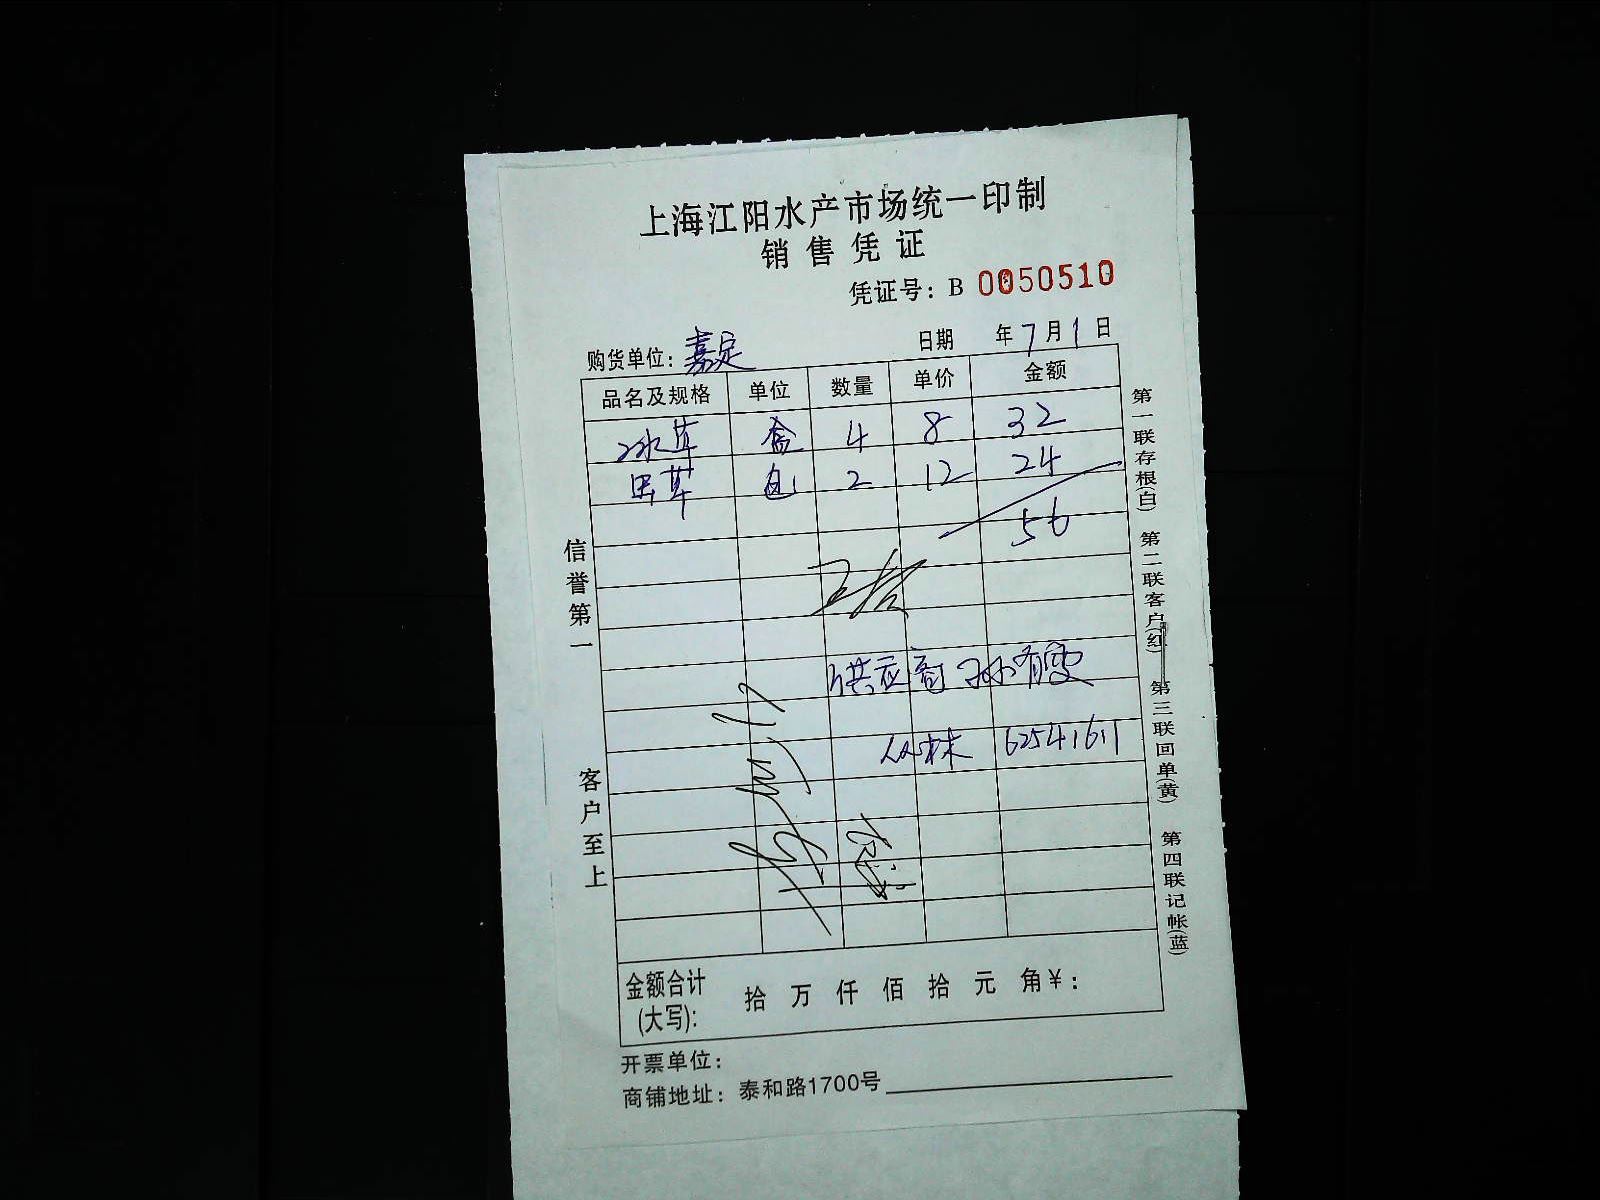 上海江阳水产市场统一印制
销售凭证
凭证号：B 0050510
购货单位：嘉定 日期 年7月1日
品名及规格 单位 数量 单价 金额
冰草 盒 4 8 32
虫草 包 2 12 24
56
供应商 孙有雯
丛林 62541611
金额合计(大写)： 拾 万 仟 佰 拾 元 角￥：
开票单位：
商铺地址：泰和路1700号
信誉第一
客户至上
第一联存根(白) 第二联客户(红) 第三联回单(黄) 第四联记帐(蓝)